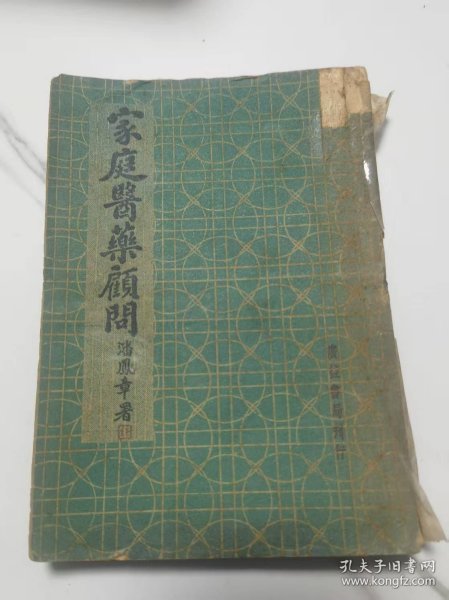 家庭醫藥顧問
潘鳳章署
書局刊行
孔夫子旧书网
www.kongfz.com